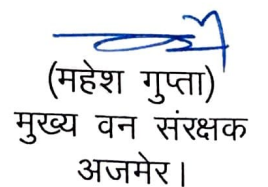 (महेश गुप्ता)
मुख्य वन संरक्षक
अजमेर।